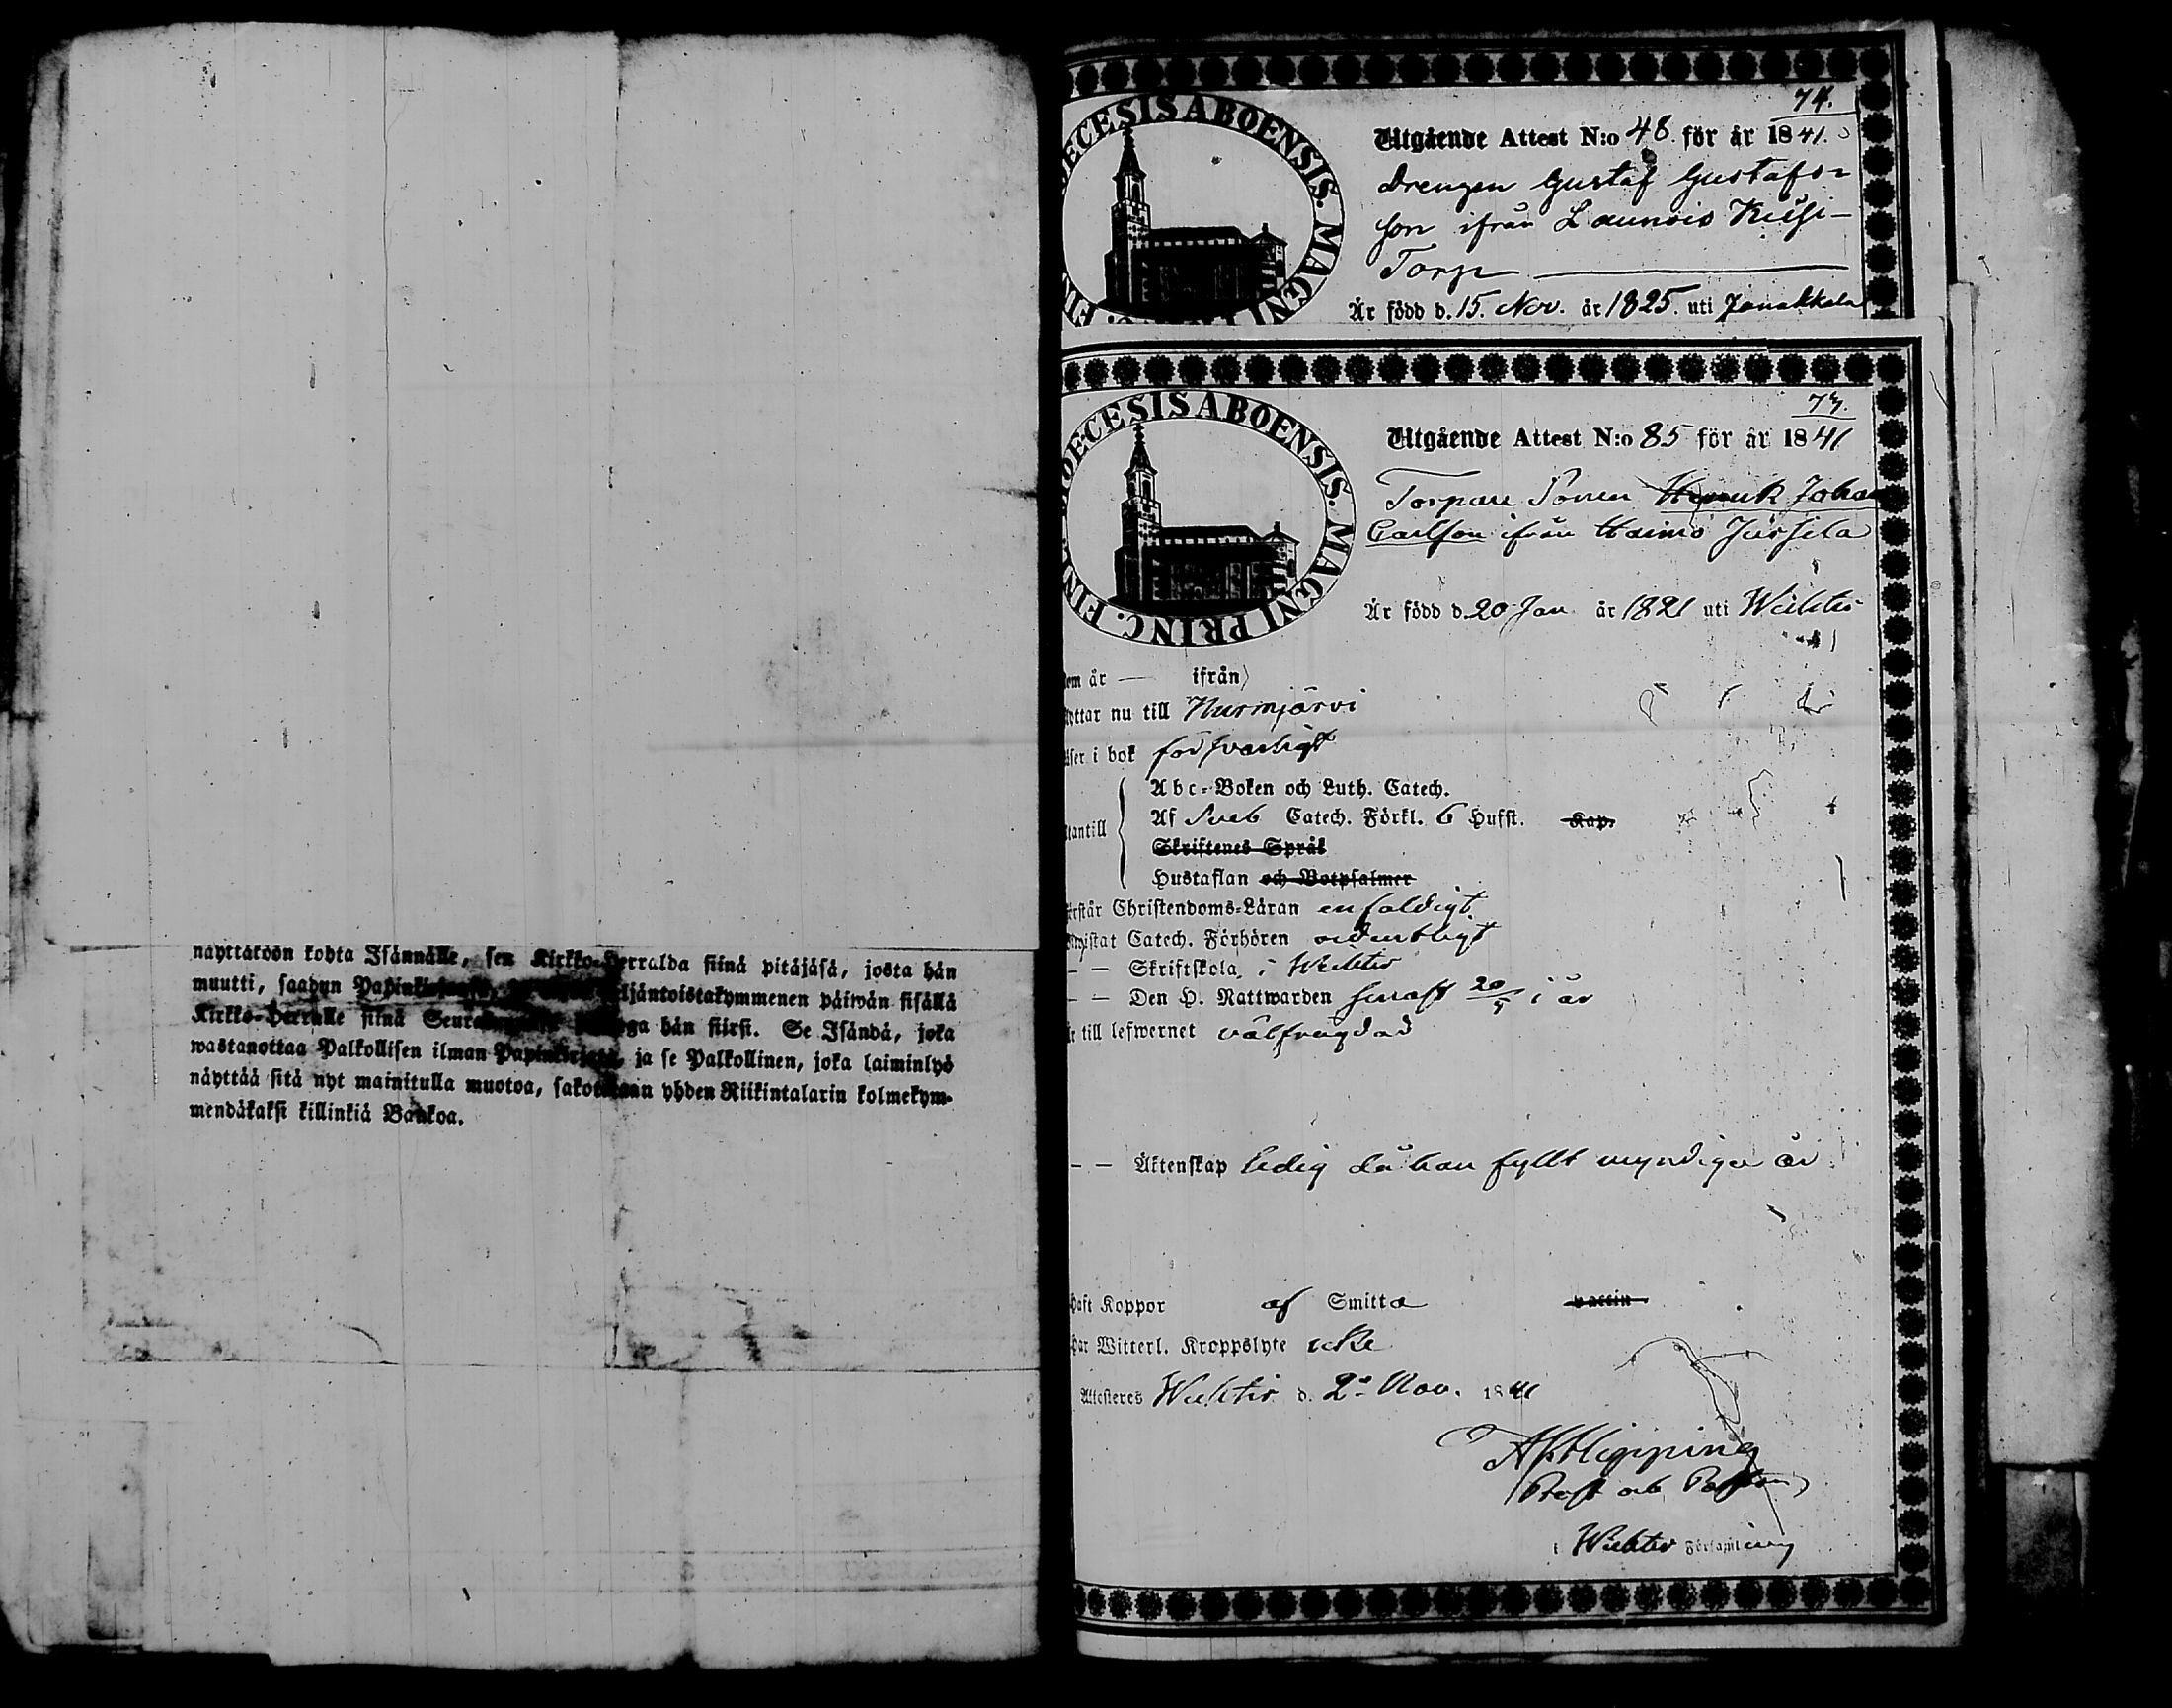 näyttäköön kohta Isännälle, sen Kirkko-Herralda siinä pitäjäsä, josta hän
muutti, saadun päiwän sisällä
Kirkko-Herralle siinä hän siirsi. Se Isändä, joka
wastanottaa Palkollisen ilman Papinkirjata, ja se Palkollinen, joka laiminlyö
näyttää sitä nyt mainitulla muotoa, sakotetaan yhden Riikintalarin kolmekym-
mendäkaksi killinkiä Bankoa.
74.
DIOECESIS ABOENSIS. MAGNI PRINC. FIN
Utgående Attest N:o 48. för år 1841.
Drengen Gustaf Gustafs=
son ifrån
Torp
Är född d. 15. Nov. år 1825. uti Janakkala
73.
DIOECESIS ABOENSIS. MAGNI PRINC. FIN
Utgående Attest N:o 85 för år 1841
Torpare Sonen Henrik Johan
Carlson ifrån Haimo Jussila
Är född d. 20 Jan år 1821 uti Wichtis
år — ifrån)
nu till Nurmijärvi
i bok försvarligt
Abc-Boken och Luth. Catech.
Af Sveb Catech. Förkl. 6 Hufst. Kap.
Skriftenes Språk
Hustaflan och Botpsalmer
Christendoms-Läran enfaldigt
Catech. Förhören ordentligt
– – Skriftskola i Wichtis
– – Den H. Nattwarden senast 20/5 i år
till lefwernet välfrägdad
– – Äktenskap ledig då han fyllt myndiga år
haft Koppor af Smitta vaccin.
har Witterl. Kroppslyte icke
Attesteres Wichtis d. 2 Nov. 1841
Hipping
Prost och Pastor
i Wichtis Församling